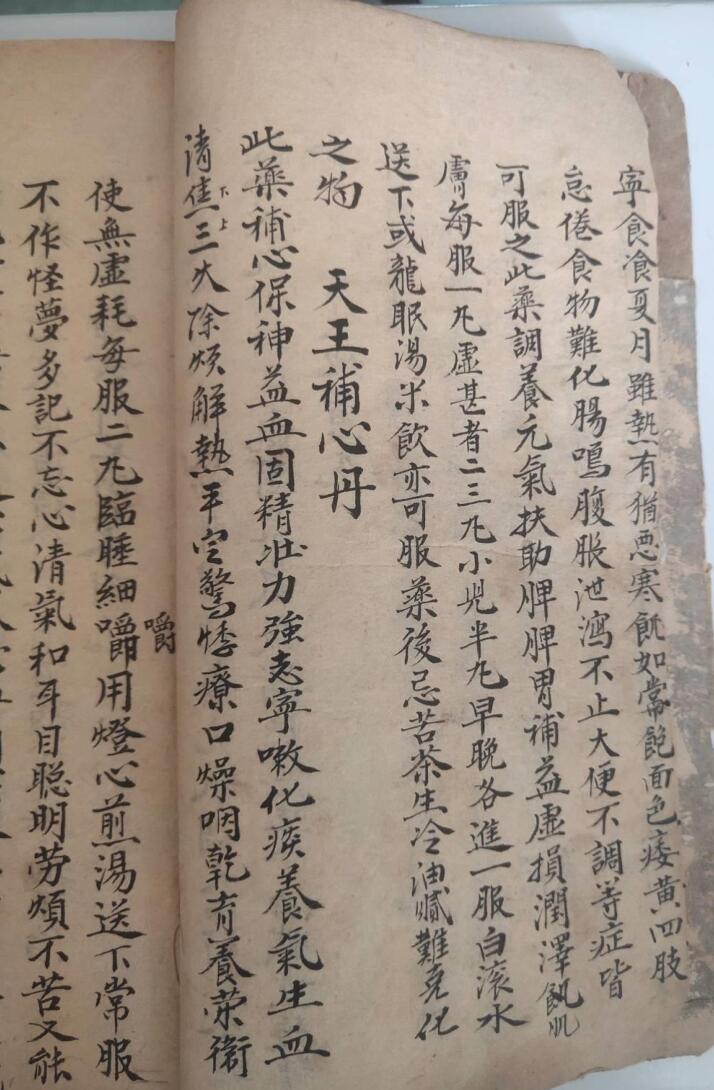 寧食飡夏月雖熱有猶惡寒飢如常飽面色痿黃四肢
怠倦食物難化腸鳴腹脹泄瀉不止大便不調等症皆
可服之此藥調養元氣扶助脾脾胃補益虛損潤澤飢肌
膚每服一九虛甚者二三九小児半九早晚各進一服白滾水
送下或龍眼湯米飲亦可服藥後忌苦茶生冷油膩難克化
之物　天王補心丹
此藥補心保神益血固精壯力強志寧嗽化痰養氣生血
清焦上下三火除煩解熱平定驚悸療口燥咽乾育養荣衛
使無虛耗每服二九臨睡細嚼嚼用燈心煎湯送下常服
不作怪夢多記不忘心清氣和耳目聪明劳煩不苦又能